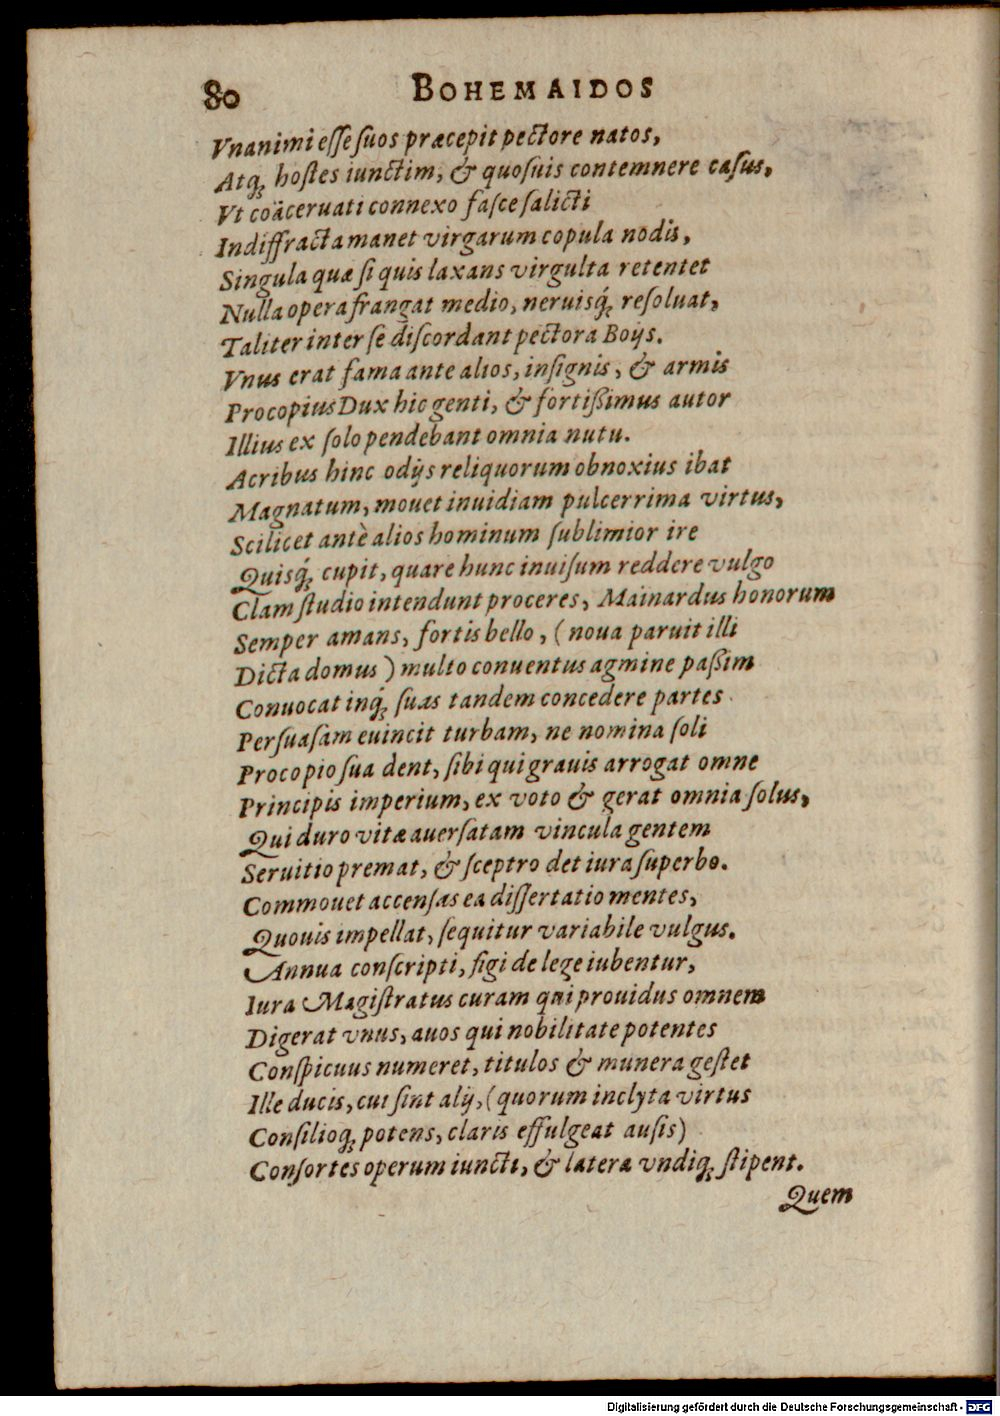 80 BOHEMAIDOS
Vnanimi eſſe ſuos præcepit pectore natos,
Atq; hoſtes iunctim, & quoſuis contemnere caſus,
Vt coäceruati connexo faſce ſalicti
Indiffracta manet virgarum copula nodis,
Singula quæ ſi quis laxans virgulta retentet
Nulla opera frangat medio, neruisq́; reſoluat,
Taliter inter ſe diſcordant pectora Boijs.
Vnus erat fama ante alios, inſignis, & armis
Procopius Dux hic genti, & fortißimus autor
Illius ex ſolo pendebant omnia nutu.
Acribus hinc odijs reliquorum obnoxius ibat
Magnatum, mouet inuidiam pulcerrima virtus,
Scilicet antè alios hominum ſublimior ire
Quisq́; cupit, quare hunc inuiſum reddere vulgo
Clam ſtudio intendunt proceres, Mainardus honorum
Semper amans, fortis bello, (noua paruit illi
Dicta domus) multo conuentus agmine paßim
Conuocat inq́; ſuas tandem concedere partes
Perſuaſam euincit turbam, ne nomina ſoli
Procopio ſua dent, ſibi qui grauis arrogat omne
Principis imperium, ex voto & gerat omnia ſolus,
Qui duro vitæ auerſatam vincula gentem
Seruitio premat, & ſceptro det iura ſuperbo.
Commouet accenſas ea diſſertatio mentes,
Quouis impellat, ſequitur variabile vulgus.
Annua conſcripti, figi de lege iubentur,
Iura Magiſtratus curam qui prouidus omnem
Digerat vnus, auos qui nobilitate potentes
Conſpicuus numeret, titulos & munera geſtet
Ille ducis, cui ſint alij, (quorum inclyta virtus
Conſilioq; potens, claris effulgeat auſis)
Conſortes operum iuncti, & latera vndiq; ſtipent.
Quem
Digitalisierung gefördert durch die Deutsche Forschungsgemeinschaft - DFG